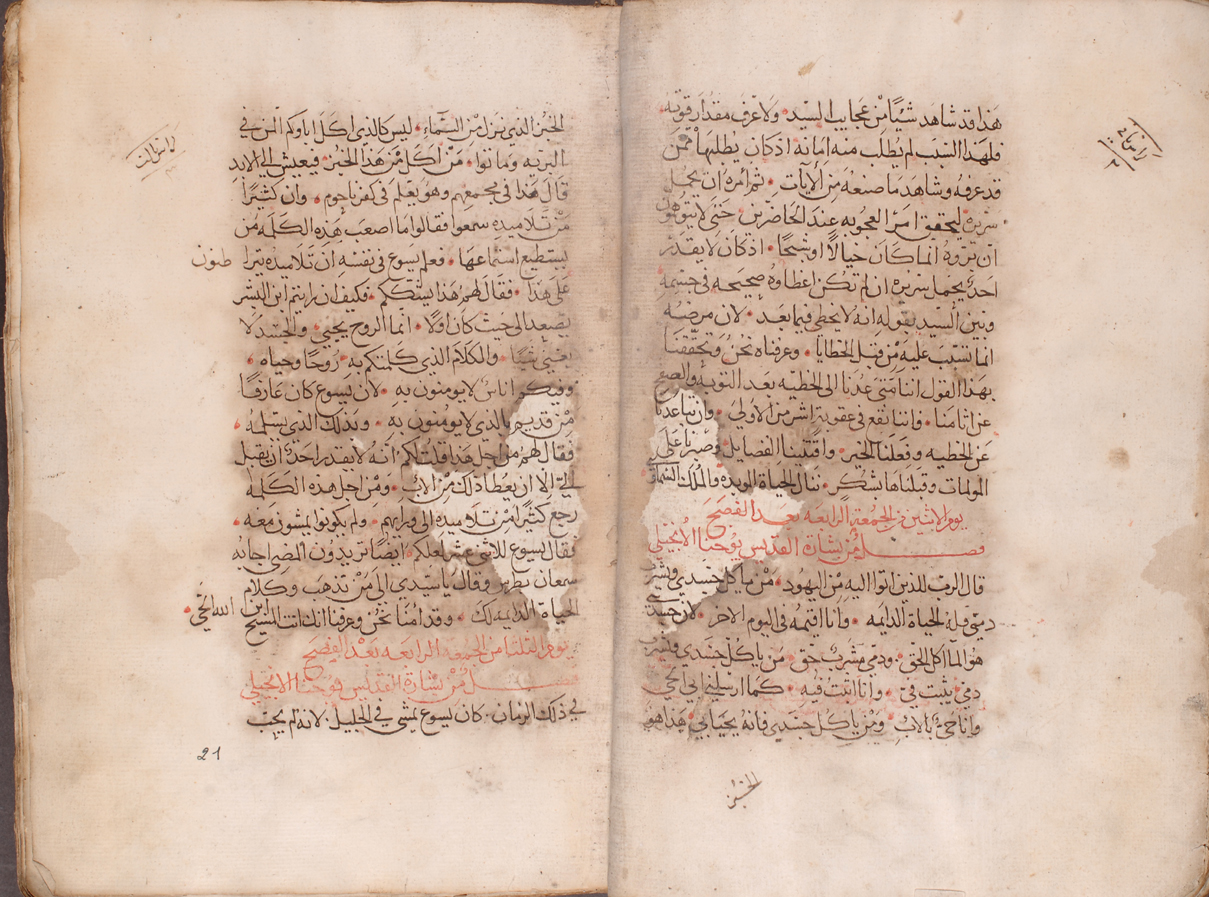 هذا قد شاهد شيًا من عجايب السيد • ولا عرف مقدار قوته •
فلهذا السبب لم يطلب منه امانه اذ كان يطلبها ممن
قد عرفه وشاهد ما صنعه من الآيات • ثم امره ان يحمل
سريره ليحقق امر العجوبه عند الحاضرين • حتى لا يتوهمون
ان نروه انما كان خيالًا او شبحًا • اذ كان لا يقدر
احد يحمل سريره ان لم تكن اعطاوه صحيحه في جسمه
وبين السيد بقوله انه لا يخطي فيما بعد • لان مرضه
انما تسبب عليه من قبل الخطايا • وعرفناه نحن وتحققنا
بهذا القول اننا متى عدنا الى الخطيه بعد التوبه والصفح
عن اثامنا • فاننا نقع في عقوبة اشر من الاولى • وان تباعدنا
عن الخطيه وفعلنا الخير • واقتنينا الفضايل • وصبرنا على
المولمات وقبلناها بشكر • ننال الحياة الوبده والملك السماى
يوم الاثنين من الجمعة الرابعه بعد الفصح
فصل من بشارة القديس يوحنا الانجيلي
قال الرب للذين اتوا اليه من اليهود • من ياكل جسدي ويشرب
دمي فله الحياة الدايمه • وانا اقيمه في اليوم الاخر • لان جسدي
هو الماكل الحق • ودمي مشرب حق • من ياكل جسدي ويشرب
دمي يثبت في • وانا اثبت فيه • كما ارسلني ابي الحي
وانا حي بالاب • ومن ياكل جسدي فانه يحيا بي • هذا هو
الخبز
الخبز الذي نزل من السماء • ليس كالذي اكل اباوكم المن في
البريه وماتوا • من اكل من هذا الخبز فيعيش الى الابد
قال هذا في مجمعهم وهو يعلم في كفرناحوم • وان كثيرًا
من تلاميذه سمعوا فقالوا ما اصعب هذه الكلمه من
يستطيع استماعها • فعلم يسوع في نفسه ان تلاميذه يتراطنون
على هذا • فقال لهم هذا يشككم • فكيف ان رايتم ابن البشر
يصعد الى حيث كان اولًا • انما الروح يحيي • والجسد لا
يغني شيًا • والكلام الذي كلمتكم به • روحًا وحياه •
وفيكم اناس لا يومنون به • لان يسوع كان عارفًا
من قديم بالذي لا يومنون به • وبذلك الذي يسلمه •
فقال لهم من اجل هذا قلت لكم • انه لا يقدر احد ان يقبل
الي الا ان يعطا ذلك من الاب • ومن اجل هذه الكلمه
رجع كثيرًا من تلاميذه الى ورايهم • ولم يكونوا يمشون معه •
فقال يسوع للاثني عشر لعلكم ايضًا تريدون المضي اجابه
سمعان بطرس وقال يا سيدي الى من نذهب وكلام
الحياة الدايمه لك • وقد امنا نحن وعرفنا انك انت المسيح ابن الله الحي •
يوم الثلثا من الجمعه الرابعه بعد الفصح
فصل من بشارة القديس يوحنا الانجيلي
في ذلك الزمان • كان يسوع يمشي في الجليل • لانه لم يحب
21